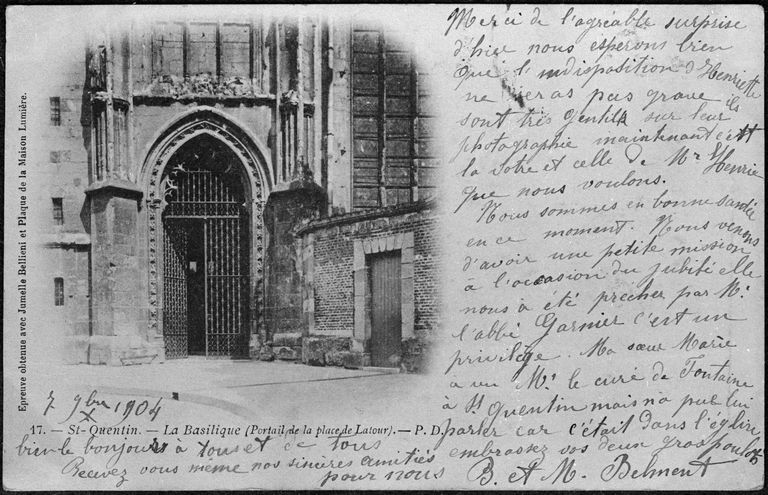 Epreuve obtenue avec Jumelle Bellieni et Plaque de la Maison Lumière.
Merci de l'agréable surprise
d'hier nous esperons bien
que l'indisposition d'Henriette
ne seras pas grave ils
sont très gentils sur leur
photographie maintenant c'est
la votre et celle de Mr Henrie
que nous voulons.
Nous sommes en bonne santée
en ce moment. Nous venons
d'avoir une petite mission
à l'occasion du jubilé elle
nous à été precher par Mr
l'abbé Garnier c'est un
privilège. Ma sœur Marie
a vu Mr le curé de Fontaine
à St Quentin mais n'a pue lui
parler car c'était dans l'église
embrassez vos deux gros poulots
B. et M. Belment
7 9bre 1904
17. — St-Quentin. — La Basilique (Portail de la place de Latour). — P. D.
bien le bonjours à tous et de tous
Recevez vous même nos sincères amitiés
pour nous